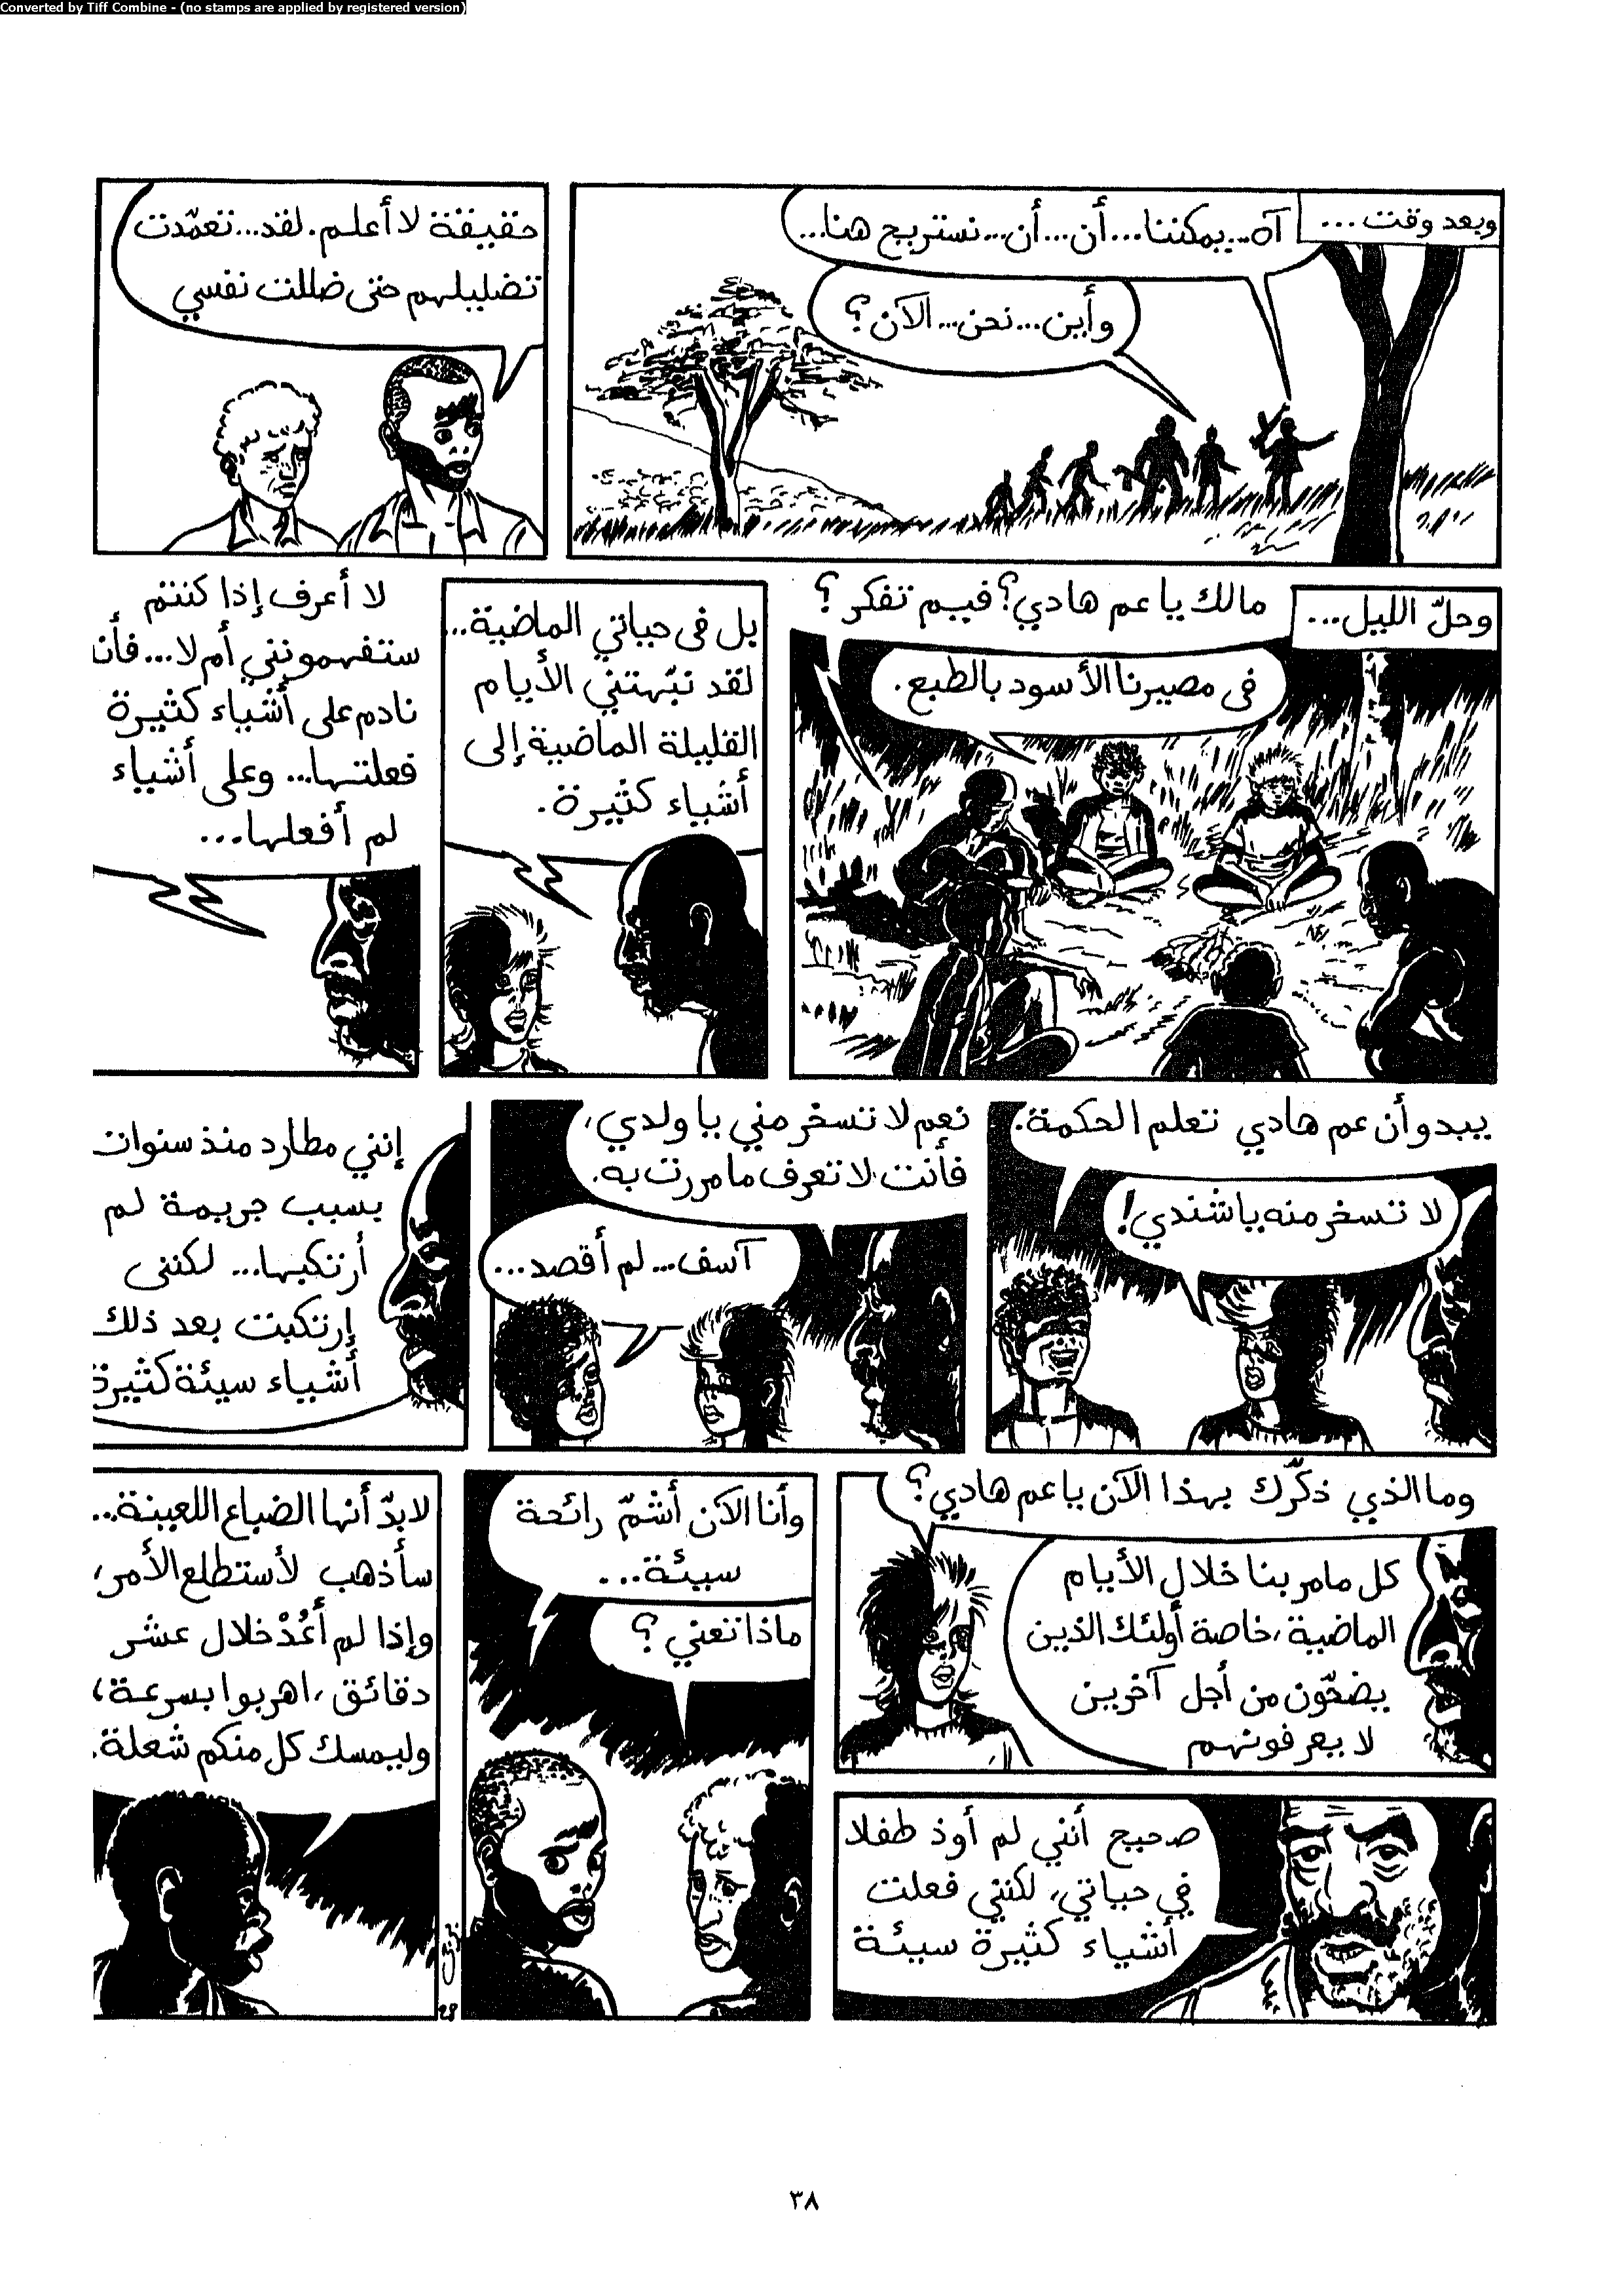 Converted by Tiff Combine - (no stamps are applied by registered version)
وبعد وقت...
آه...يمكننا...أن...أن...نستريح هنا...
وأين...نحن...الآن؟
حقيقة لا أعلم. لقد...تعمّدت
تضليلهم حتى ضللت نفسي
وحلّ الليل...
مالك يا عم هادي؟ فيم تفكر؟
فى مصيرنا الأسود بالطبع.
بل فى حياتي الماضية...
لقد نبّهتني الأيام
القليلة الماضية إلى
أشياء كثيرة.
لا أعرف إذا كنتم
ستفهمونني أم لا...فأنا
نادم على أشياء كثيرة
فعلتها... وعلى أشياء
لم أفعلها...
يبدو أن عم هادي تعلم الحكمة.
لا تسخر منه يا شندي!
نعم لا تسخر مني يا ولدي،
فأنت لا تعرف ما مررت به.
آسف... لم أقصد...
إنني مطارد منذ سنوات
بسبب جريمة لم
أرتكبها... لكننى
إرتكبت بعد ذلك
أشياء سيئة كثيرة
وما الذي ذكّرك بهذا الآن يا عم هادي؟
كل ما مر بنا خلال الأيام
الماضية، خاصة أولئك الذين
يضحّون من أجل آخرين
لا يعرفونهم
صحيح أنني لم أوذ طفلا
في حياتي، لكنني فعلت
أشياء كثيرة سيئة
وأنا الآن أشمّ رائحة
سيئة...
ماذا تعني؟
لا بدّ أنها الضباع اللعينة...
سأذهب لأستطلع الأمر،
وإذا لم أعُدْ خلال عشر
دقائق، اهربوا بسرعة،
وليمسك كل منكم شعلة.
٣٨